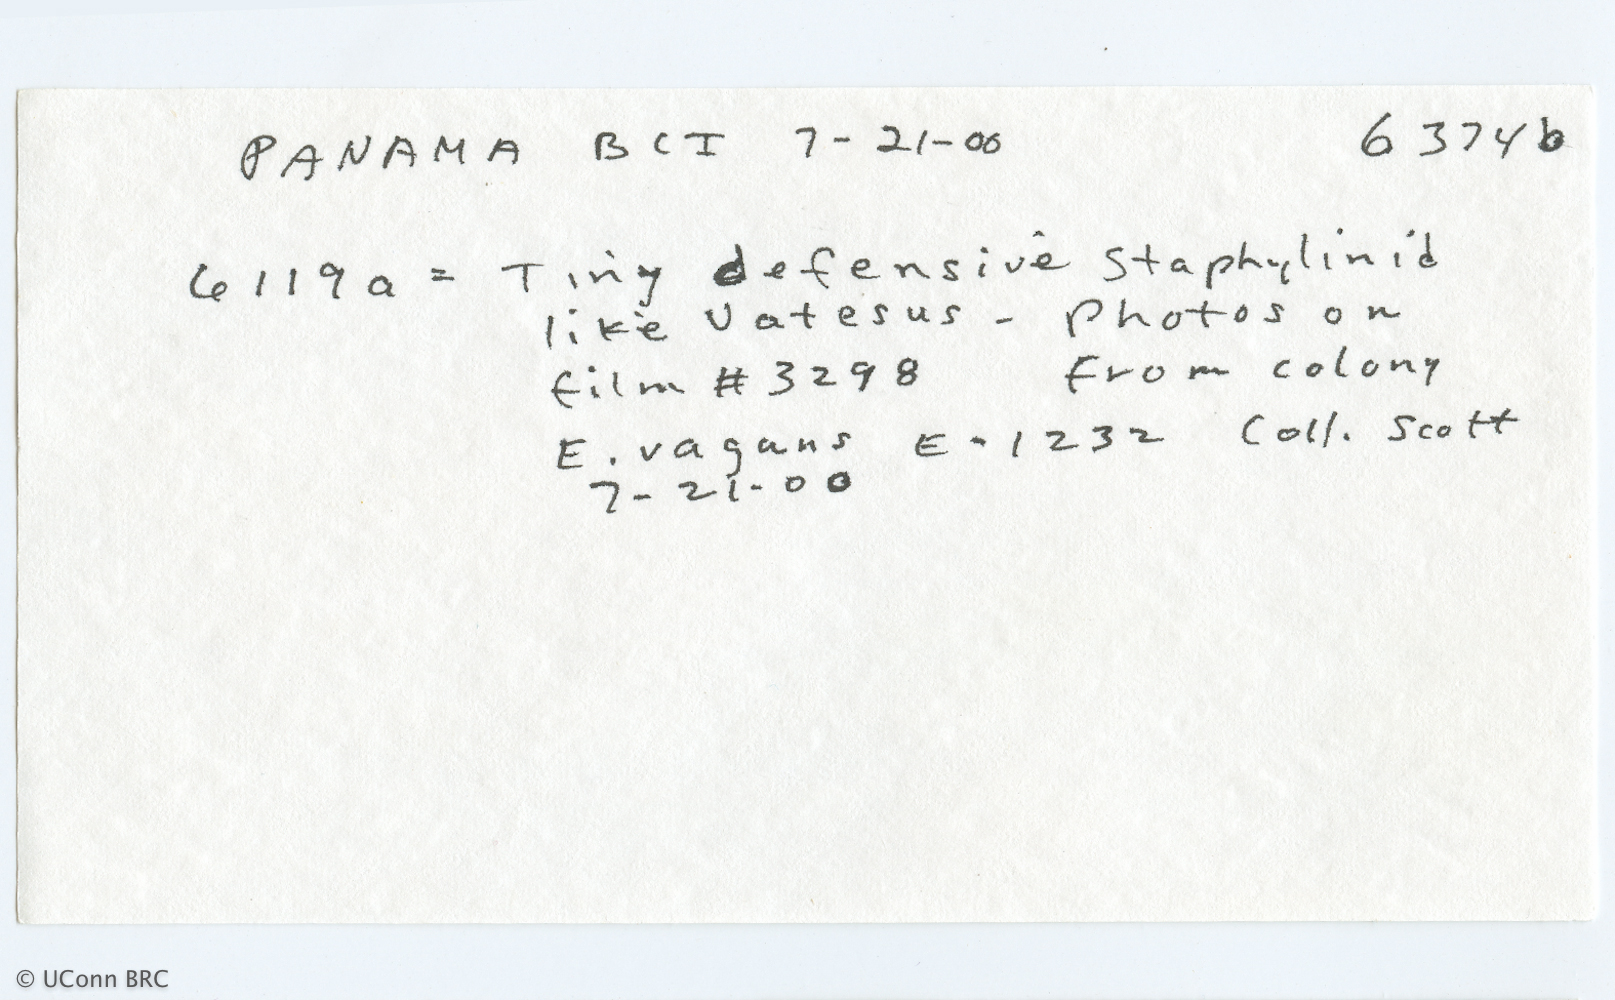 PANAMA BCI 7-21-00 6374b
6119a = Tiny defensive Staphylinid
like Vatesus - Photos on
film #3298 From colony
E. vagans E-1232 Coll. Scott
7-21-00
© UConn BRC